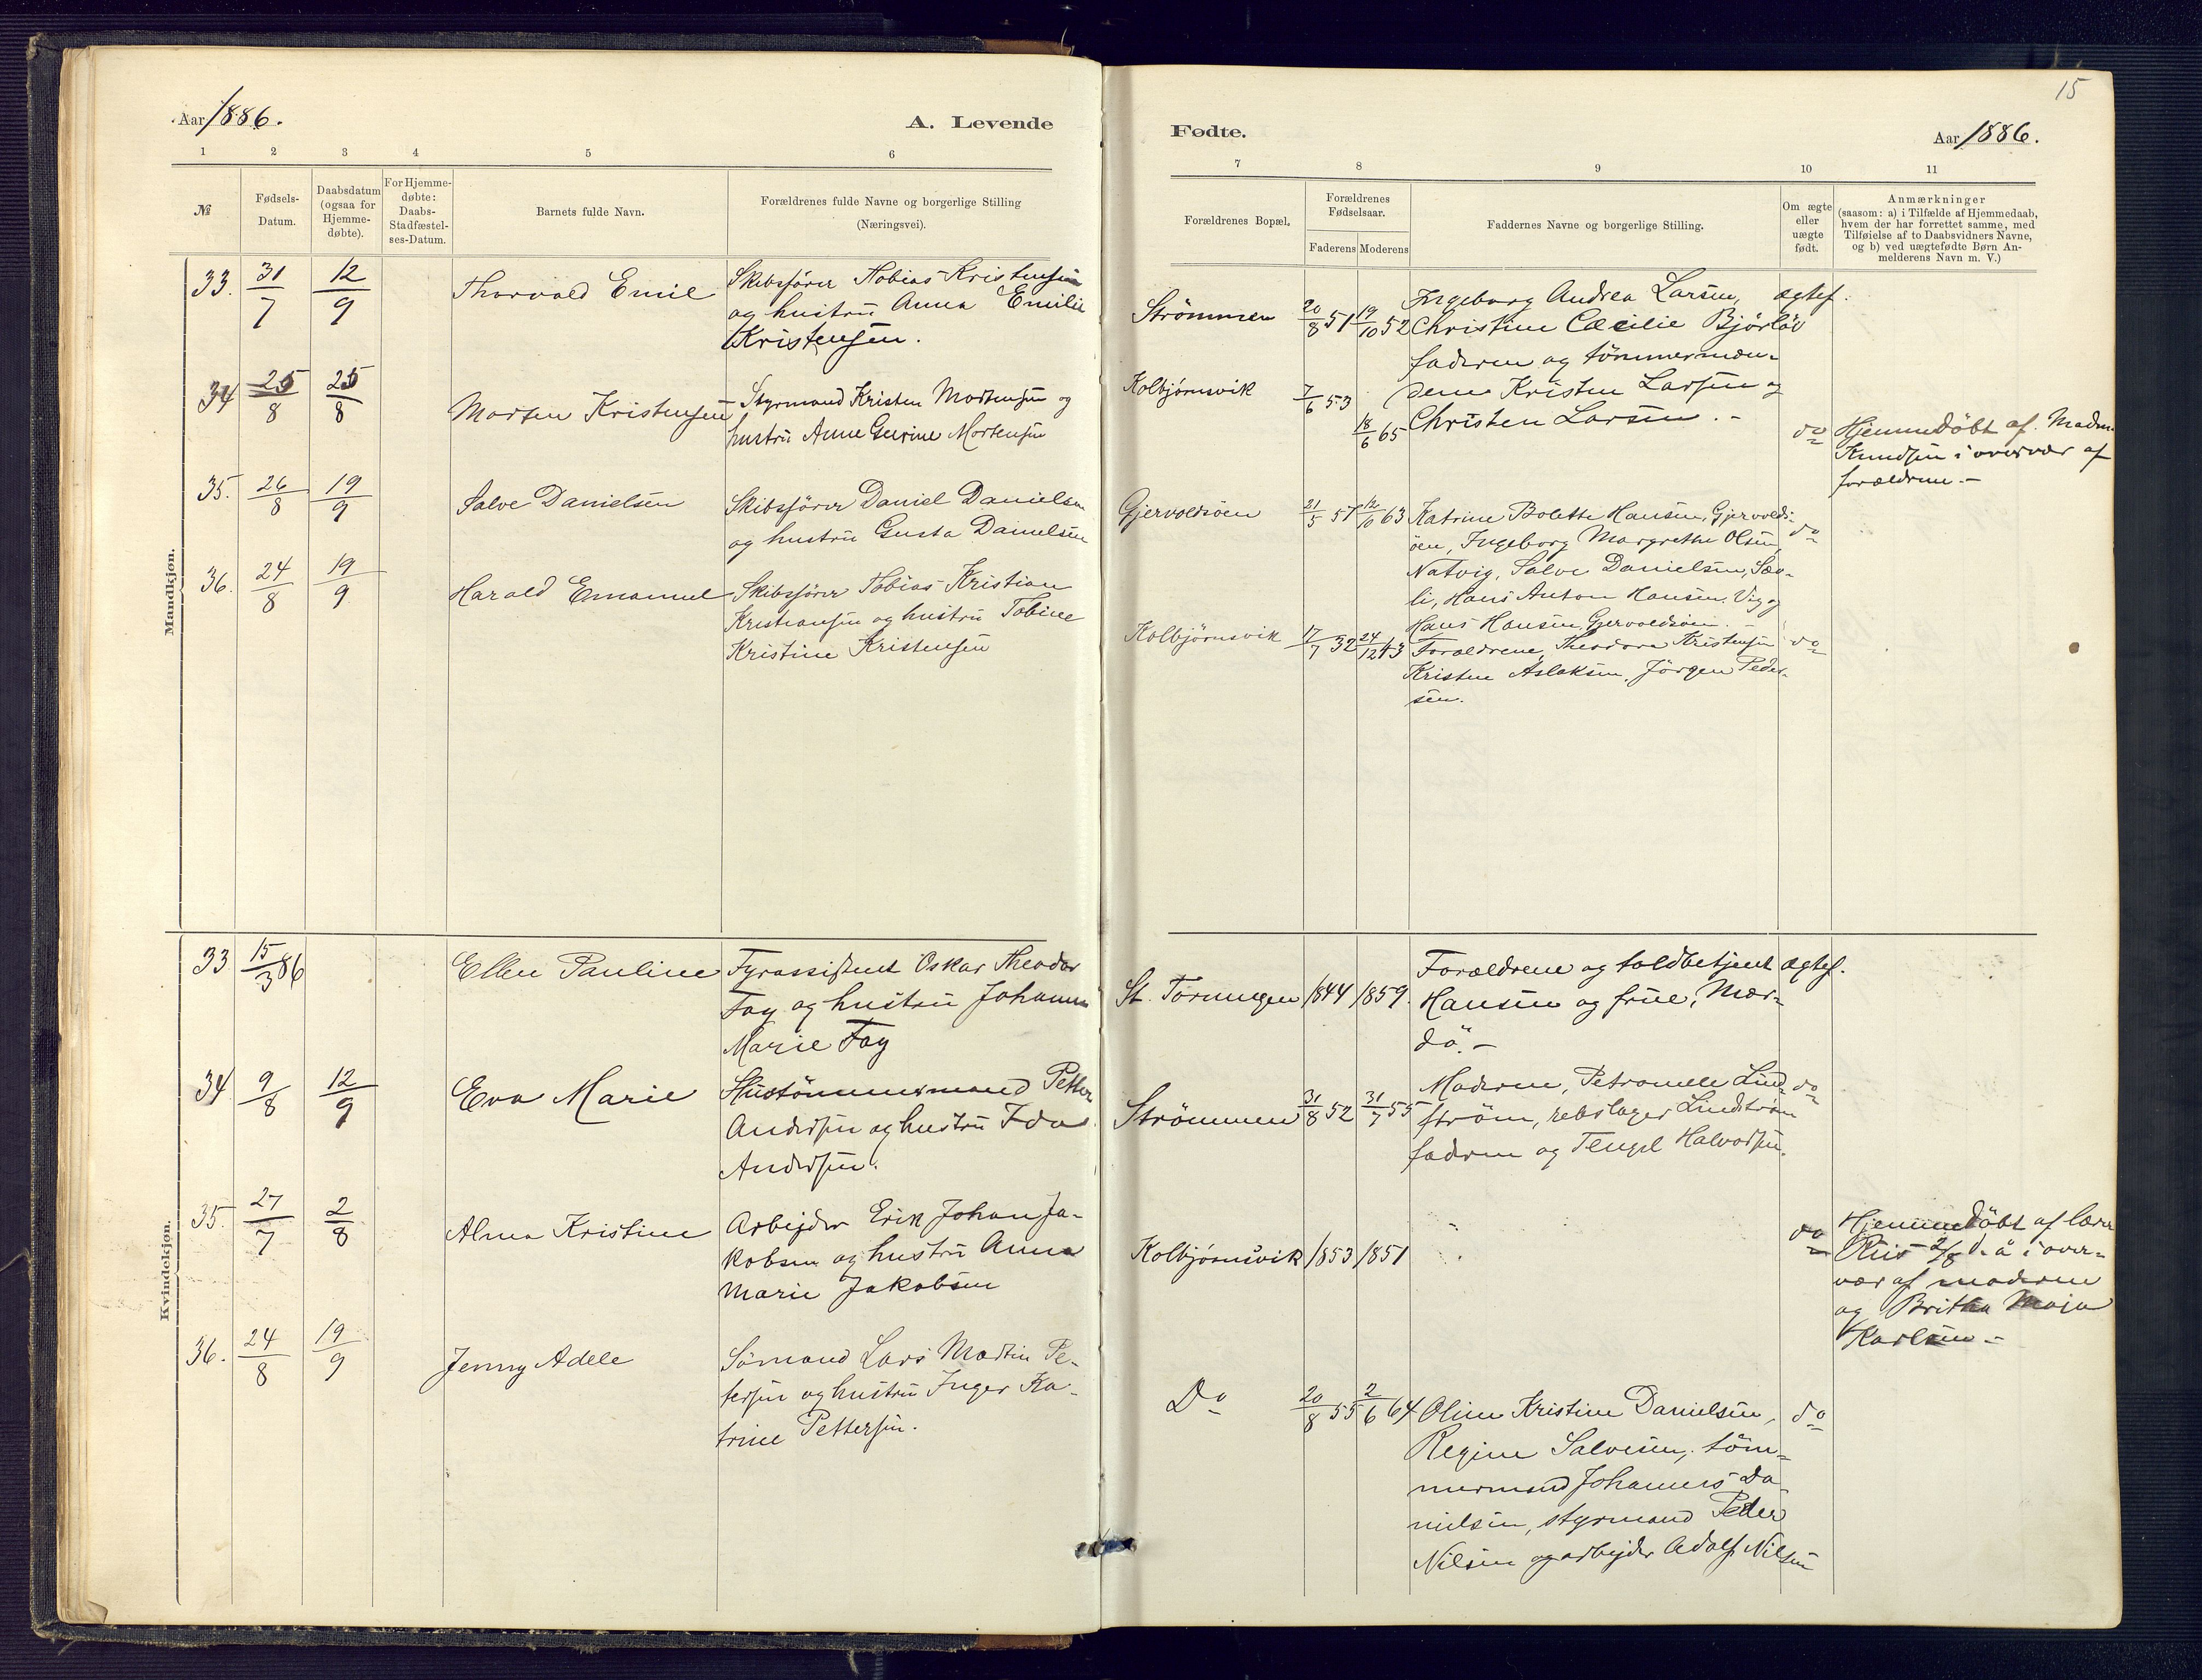 15
Aar 1886.
A. Levende
Fødte.
Aar 1886.
1 2 3 4 5 6
7 8 9 10 11
№
Fødsels-
Datum.
Daabsdatum
(ogsaa for
Hjemme-
døbte).
For Hjemme-
døbte:
Daabs-
Stadfæstel-
ses-Datum.
Barnets fulde Navn.
Forældrenes fulde Navne og borgerlige Stilling
(Næringsvei).
Forældrenes Bopæl.
Forældrenes
Fødselsaar.
Faderens Moderens
Faddernes Navne og borgerlige Stilling.
Om ægte
eller
uægte
født.
Anmærkninger
(saasom: a) i Tilfælde af Hjemmedaab,
hvem der har forrettet samme, med
Tilføielse af to Daabsvidners Navne,
og b) ved uægtefødte Børn An-
melderens Navn m. V.)
Mandkjøn.
33. 31/7 12/9
Thorvald Emil
Skibsfører Tobias Kristensen
og hustru Anna Emilie
Kristensen.
Strömmen
20/8 51 19/10 52
Ingeborg Andrea Larsen,
Christine Cæcilie Bjørløv
faderen og tömmermæn-
dene Kristen Larsen og
Christen Larsen. -
ægtef.
34 25/8 25/8
Morten Kristensen
Styrmand Kristen Mortensen og
hustru Anne Gurine Mortensen
Kolbjørnsvik
7/6 53
18/6 65
do
Hjemmedöbt af Madm.
Knudsen i overvær af
forældrene. -
35. 26/8 19/9
Salve Danielsen
Skibsfører Daniel Danielsen
og hustru Gusta Danielsen
Gjervoldsöen
21/5 57 12/10 63
Katrine Bolette Hansen, Gjervolds-
öen, Ingeborg Margrethe Olsen
Natvig, Salve Danielsen, Sæv-
li, Hans Anton Hansen, Vig og
Hans Hansen, Gjervoldsöen. -
do
36. 24/8 19/9
Harald Emanuel
Skibsfører Tobias Kristian
Kristiansen og hustru Tobine
Kristine Kristensen
Kolbjörnsvik
17/7 32 24/12 43
Forældrene, Theodora Kristensen
Kristine Aslaksen, Jörgen Peder-
sen.
do
Kvindekjøn.
33 15/3 86
Ellen Pauline
Fyrassistent Oskar Theodor
Fay og hustru Johanne
Marie Fay
St. Torungen
1844 1859.
Forældrene og toldbetjent
Hansen og frue, Mær-
dö. -
ægtef.
34 9/8 12/9
Eva Marie
Hustömmermand Petter
Andersen og hustru Ida
Andersen.
Strömmen
31/8 52 31/7 55
Moderen, Petronelle Lind-
ström, rebslager Lindström
faderen og Tengel Halvorsen.
do
35. 27/7 2/8
Alma Kristine
Arbejder Erik Johan Ja-
kobsen og hustru Anna
Marie Jakobsen
Kolbjørnsvik
1853 1851
do
Hjemmedöbt af lærer
Riis 2/8 d. å i over-
vær af moderne
og Britha Maja
Karlsen -
36. 24/8 19/9
Jenny Adele
Sömand Lars Martin Pe-
tersen og hustru Inger Ka-
trine Pettersen.
Do
20/8 55 2/6 64
Oline Kristine Danielsen,
Regine Salvesen, töm-
mermand Johannes Da-
nielsen, styrmand Peder
Nilsen og arbejder Adolf Nilsen
do